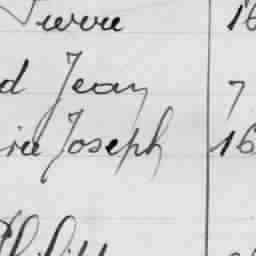 Pierre 16
d Jean 7
rie Joseph 16